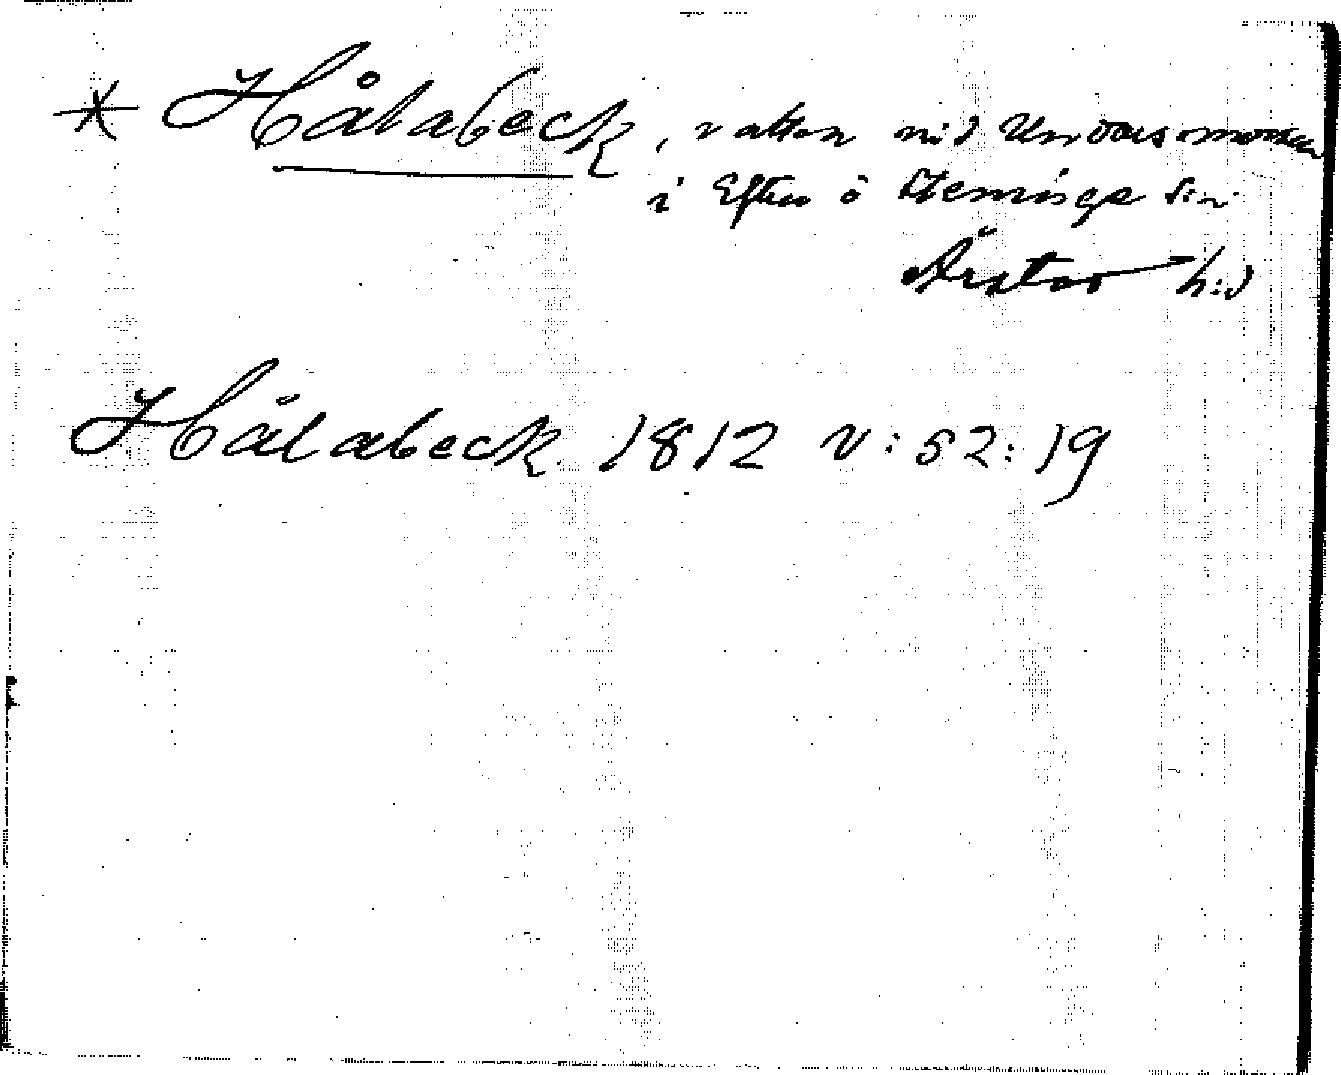 * Hålabeck, vatten vid Undarsmossen
i Eftra o Steninge s:n
Årstad h:d
Hålabeck 1812 V:52:19